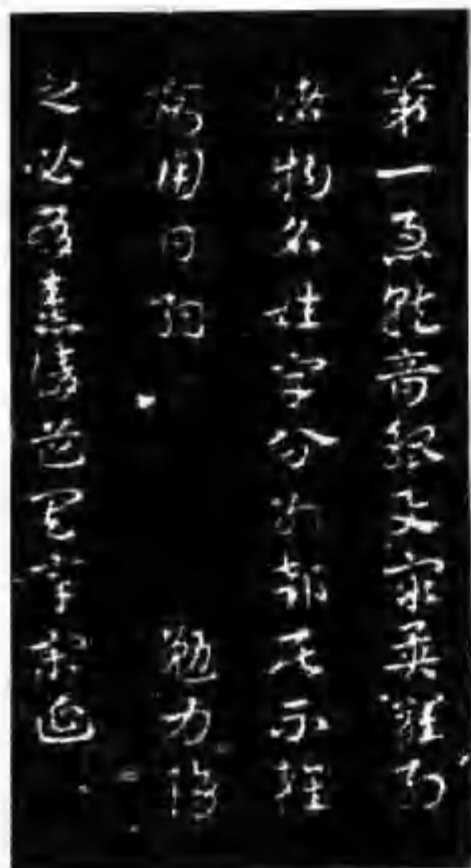 第一急就奇觚與眾異羅列
諸物名姓字分別部居不雜
廁用日約 勉力務
之必有憙請道其章宋延